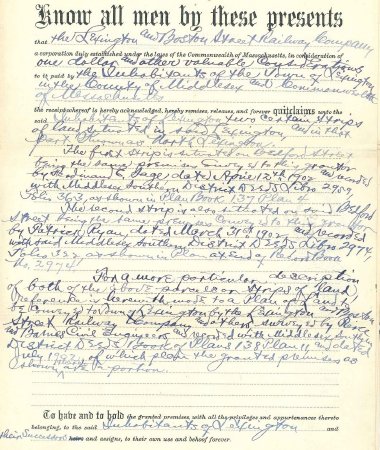 Know all men by these presents
that the Lexington and Boston Street Railway Company
a corporation duly established under the laws of the Commonwealth of Massachusetts, in consideration of
one dollar and other valuable considerations
to it paid by the Inhabitants of the Town of Lexington
in the County of Middlesex and Commonwealth
of Massachusetts
the receipt whereof is hereby acknowledged, hereby remises, releases, and forever quitclaims unto the
said Inhabitants of Lexington two certain strips
of land situated in said Lexington and in that
part known as North Lexington.
The first strip is situated on Bedford Street
being the same premises conveyed to this grantor
by Ferdinand Page dated April 12th 1902 and recorded
with Middlesex Southern District Deeds Libro 2959
Folio 363, as shown in Plan Book 137 Plan 4.
The second strip is also situated on said Bedford
Street being the same premises conveyed
by Patrick Ryan, dated March 31st 1902 and recorded
with said Middlesex Southern District Deeds Libro 2974,
Folio 322, as shown in Plan at End of Record Book
No. 2974.
For a more particular description
of both of the above described strips of land,
reference is herewith made to a Plan of Land
conveyed to Town of Lexington by the Lexington and Boston
Street Railway Company and others, surveyed by Pierce
and Barnes Civil Engineers and recorded with Middlesex Southern
District Deeds Book of Plans 138 Plan 11 and dated
July 1902, of which plan the granted premises are
shown as a portion.
To have and to hold the granted premises, with all the privileges and appurtenances thereto
belonging, to the said Inhabitants of Lexington and
their Successors heirs and assigns, to their own use and behoof forever.